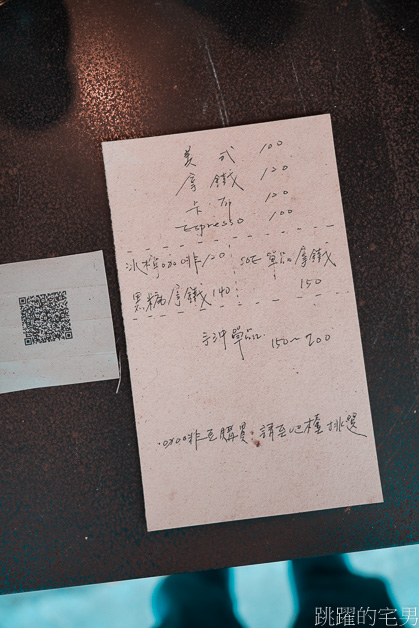 美式 100
拿鐵 120
卡布 120
Espresso 100
冰檸咖啡 120
SOE 單品拿鐵 150
黑糖拿鐵 140
手沖單品 150~200
咖啡豆購買,請至吧檯挑選
跳躍的宅男